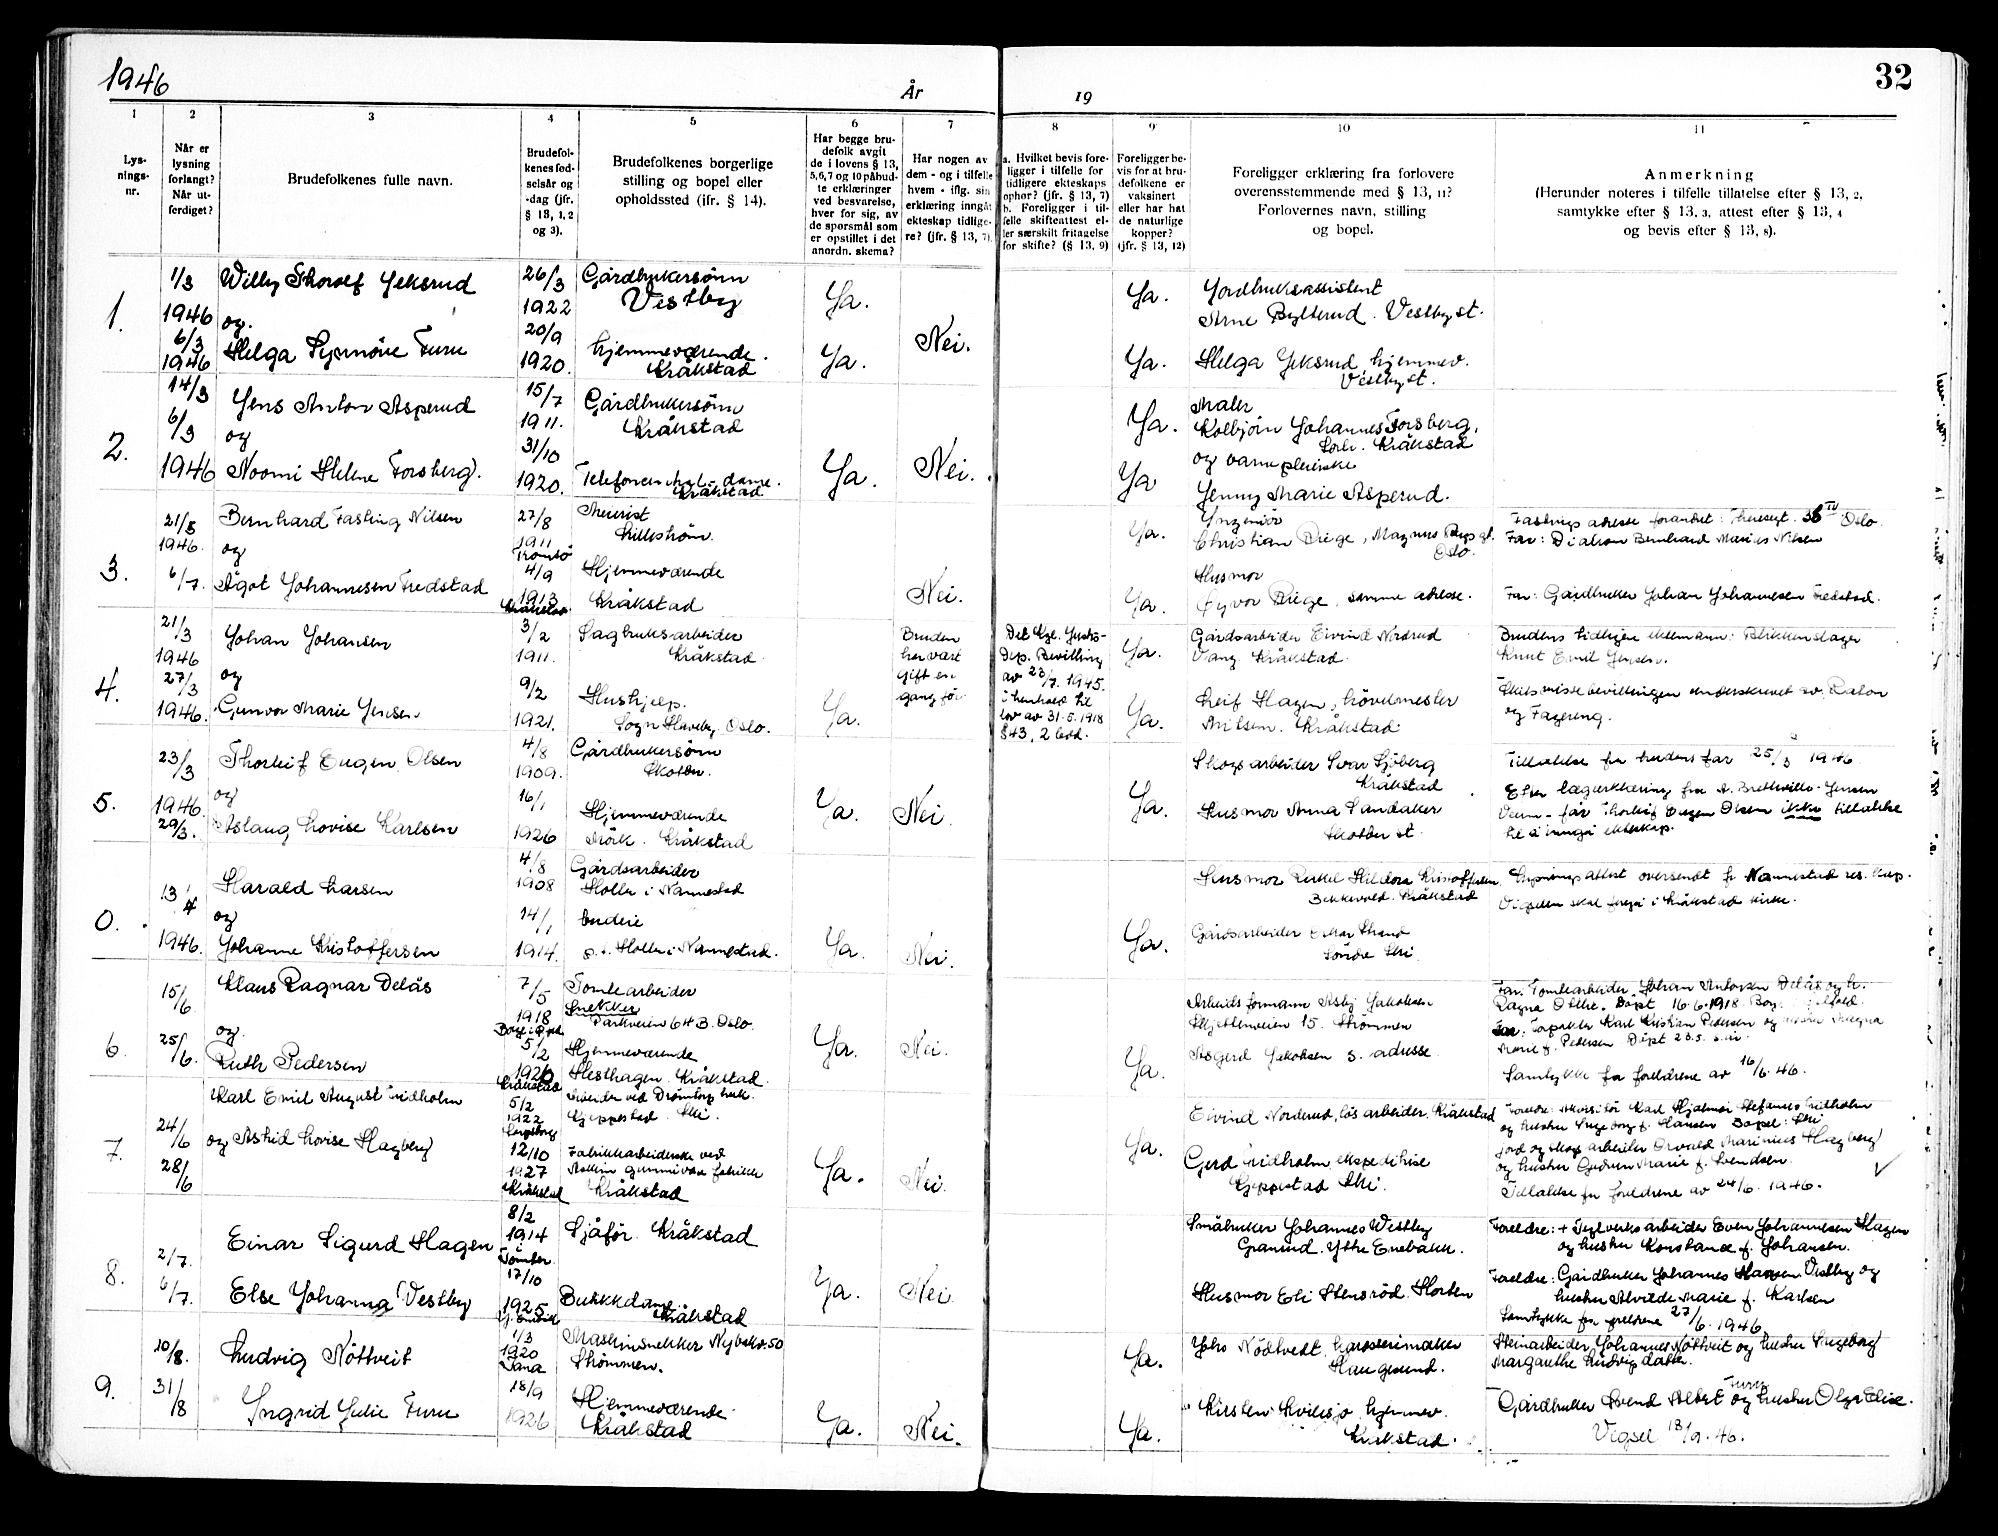 1946
År
19
32
1
2
3
4
5
6
7
8
9
10
11
Lys-
nings-
nr.
Når er
lysning
forlangt?
Når ut-
ferdiget?
Brudefolkenes fulle navn.
Brudefol-
kenes fød-
selsår og
-dag (jfr.
§ 13, 1, 2
og 3).
Brudefolkenes borgerlige
stilling og bopel eller
opholdssted (ifr. § 14).
Har begge bru-
defolk avgit
de i lovens § 13,
5,6,7 og 10 påbud-
te erklæringer
ved besvarelse,
hver for sig, av
de spørsmål som
er opstillet i det
anordn. skema?
Har nogen av
dem - og i tilfelle
hvem - iflg. sin
erklæring inngåt
ekteskap tidlige-
re? (jfr. § 13, 7).
a. Hvilket bevis fore-
ligger i tilfelle for
tidligere ekteskaps
ophør? (jfr. § 13, 7)
b. Foreligger i til-
felle skifteattest el-
ler særskilt fritagelse
for skifte? (§ 13, 9)
Foreligger be-
vis for at bru-
defolkene er
vaksinert
eller har hat
de naturlige
kopper?
(jfr. § 13, 12)
Foreligger erklæring fra forlovere
overensstemmende med § 13, 11?
Forlovernes navn, stilling
og bopel.
Anmerkning
(Herunder noteres i tilfelle tillatelse efter § 13, 2,
samtykke efter § 13, 3, attest efter § 13, 4
og bevis efter § 13, 8).
1.
1/3
1946
6/3
1946
Willy Thorolf Jeksrud
og
Helga Synnöve Furu
26/3
1922
20/9
1920.
Gårdbrukersönn
Vestby
hjemmeværende.
Kråkstad
Ja.
Ja.
Nei.
Ja.
Ja.
Jordbruksassistent
Arne Bylterud. Vestby st.
Helga Jeksrud, hjemmev.
Vestby st.
2.
14/3
6/3
1946
Jens Anton Asperud
og
Noomi Helene Forsberg.
15/7
1911.
31/10
1920.
Gårdbrukersönn
Kråkstad
dame.
Kråkstad
Ja.
Nei.
Ja.
Ja
Maler
Kolbjörn Johannes Forsberg,
Kråkstad
og barnepleierske
Jenny Marie Asperud.
3.
21/5
1946.
6/7.
Bernhard Fasting Nilsen
og
Ågot Johannesen Fredstad
27/8
1911
Tromsö
4/9
1913
Kråkstad
Meierist
Lilleström.
Hjemmeværende
Kråkstad
Nei.
Ja.
Ja.
Ingeniör
Christian Brige, Magnus Bergs gt.
Oslo.
Husmor
Öyvor Brige, samme adresse.
Fastings adresse forandret: Theresegt. 36 IV Oslo.
Far: Diakon Bernhard Marius Nilsen
Far: Gårdbruker Johan Johannesen Fredstad.
4.
21/3
1946
27/3
1946.
Johan Johansen
og
Gunvor Marie Jensen.
3/2
1911.
9/2
1921.
Sagbruksarbeider
Kråkstad
Hushjelp.
Sogn Haveby. Oslo.
Ja.
Bruden
har vært
gift en
gang før
Det Kgl. Justis-
Dep. Bevilling
av 23/7. 1945.
i henhold til
lov av 31.5.1918
§43, 2 ledd.
Ja.
Ja.
Gårdsarbeider Eivind Nordrud
Vang Kråkstad.
Leif Hagen, hövelmester
Nilsen. Kråkstad.
Brudens tidligere ektemann: Blikkenslager
Knut Emil Jensen.
Skilsmissebevillingen underskrevet av
og Fagereng.
5.
23/3
1946.
29/3.
Thorleif Eugen Olsen
og
Aslaug Lovise Karlsen
4/8
1909.
16/1
1926
Gårdbrukersönn
Skotbu.
Hjemmeværende
Mörk. Kråkstad
Ja.
Nei.
Ja.
Skogsarbeider Ivar Sjöberg
Kråkstad
Husmor Anna Sandaker
Skotbu st.
Tillatelse fra brudens far 25/3 1946.
Efter lægerklæring fra A. Brettville-Jensen
får Thorleif Eugen Olsen ikke tillatelse
til å inngå ekteskap.
0.
13/4
1946.
Harald Larsen
og
Johanne Kristoffersen
4/8
1908
14/1
1914.
Gårdsarbeider
Holler i Nannestad
budeie
p.t. Holler i Nannestad.
Ja.
Nei.
Ja.
Husmor Hildora Kristoffersen
Kråkstad
Gårdsarbeider Strand
Söndre Ski.
Lysningsattest oversendt fr Nannestad res. kap.
Vigselen skal foregå i Kråkstad kirke.
6.
15/6
25/6.
Klaus Ragnar Delås
og.
Ruth Pedersen
7/5
1918
5/2
1926
Kråkstad
Tomtearbeider
Snekker
Parkveien 64 B. Oslo.
Hjemmeværende
Hesthagen. Kråkstad.
Ja.
Nei.
Ja.
Arbeidsformann Asbj. Jakobsen
Skjettenveien 15. Strömmen
Asgerd Jakobsen s. adresse.
Far: Tomtearbeider Johan Antonsen Delås og h.
Ragna Othlie. Döpt 16.6.1918
Karl Kristian Pedersen og
Marie f. Pedersen Döpt 23.5.
Samtykke fra foreldrene av 16/6. 46.
7.
24/6
28/6
Karl Emil August Lidholm
og Astrid Lovise Hagberg
5/2
1922
12/10
1927
Kråkstad
Arbeider ved Drömtorp bruk.
Gjeppestad. Ski.
Fabrikkarbeiderske ved
Askim gummivare fabrikk
Kråkstad
Ja.
Nei.
Ja.
Eivind Norderud, lös arbeider, Kråkstad
Gerd Lidholm, ekspeditrise
Gjeppestad Ski.
Foreldre: Karl Hjalmar Stefanus Lidholm
og hustru Ingeborg f. Hansen Bopel: Ski
jord og skogsarbeider Osvald Marinius Hagberg
og hustru Gudrun Marie f. Svendsen.
Tillatelse fra foreldrene av 24/6. 1946.
8.
2/7.
6/7.
Einar Sigurd Hagen
Else Johanna Vestby
8/2
1914
17/10
1925
Sjåför. Kråkstad
Butikkdame
Kråkstad
Ja.
Nei.
Småbruker Johannes Westby
Granrud. Ytre Enebakk.
Husmor Eli Stensröd. Horten
Foreldre: + Teglverksarbeider Even Johannesen Hagen
og hustru Konstance f. Johansen.
Foreldre: Gårdbruker Johannes Hansen Vestby og
hustru Alvilde Marie f. Karlsen
Samtykke fra foreldrene 27/6. 1946.
9.
10/8.
31/8
Ludvig Nöttveit
Ingrid Julie Furu
1/3
1920
18/9
1926
Maskinsnekker Nybokr. 50
Strömmen.
Hjemmeværende
Kråkstad
Ja.
Nei.
Ja.
Ja.
Johs Nödtvedt, karosserimaker
Haugesund.
Kirsten Kvilesjö hjemmev.
Kråkstad.
Steinarbeider Johannes Nöttveit og hustru Ingeborg
Margarethe Ludvigsdatter.
Gårdbruker Svend Albert Furu og hustru Olga Elise.
Vigsel 18/9. 46.